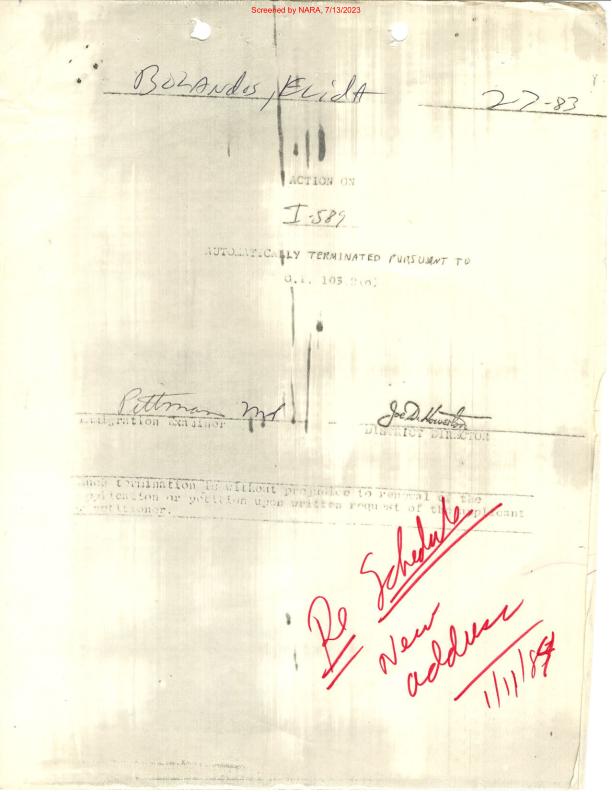 Screened by NARA, 7/13/2023
Bolandos, Elida 27-83
ACTION ON
I-589
AUTOMATICALLY TERMINATED PURSUANT TO
O.I. 103.2(o)
Pittman
Immigration Examiner
Joe D. Howerton
DISTRICT DIRECTOR
termination is without prejudice to renewal of the
application or petition upon written request of the applicant
petitioner.
Re Schedule
New
address
1/11/84